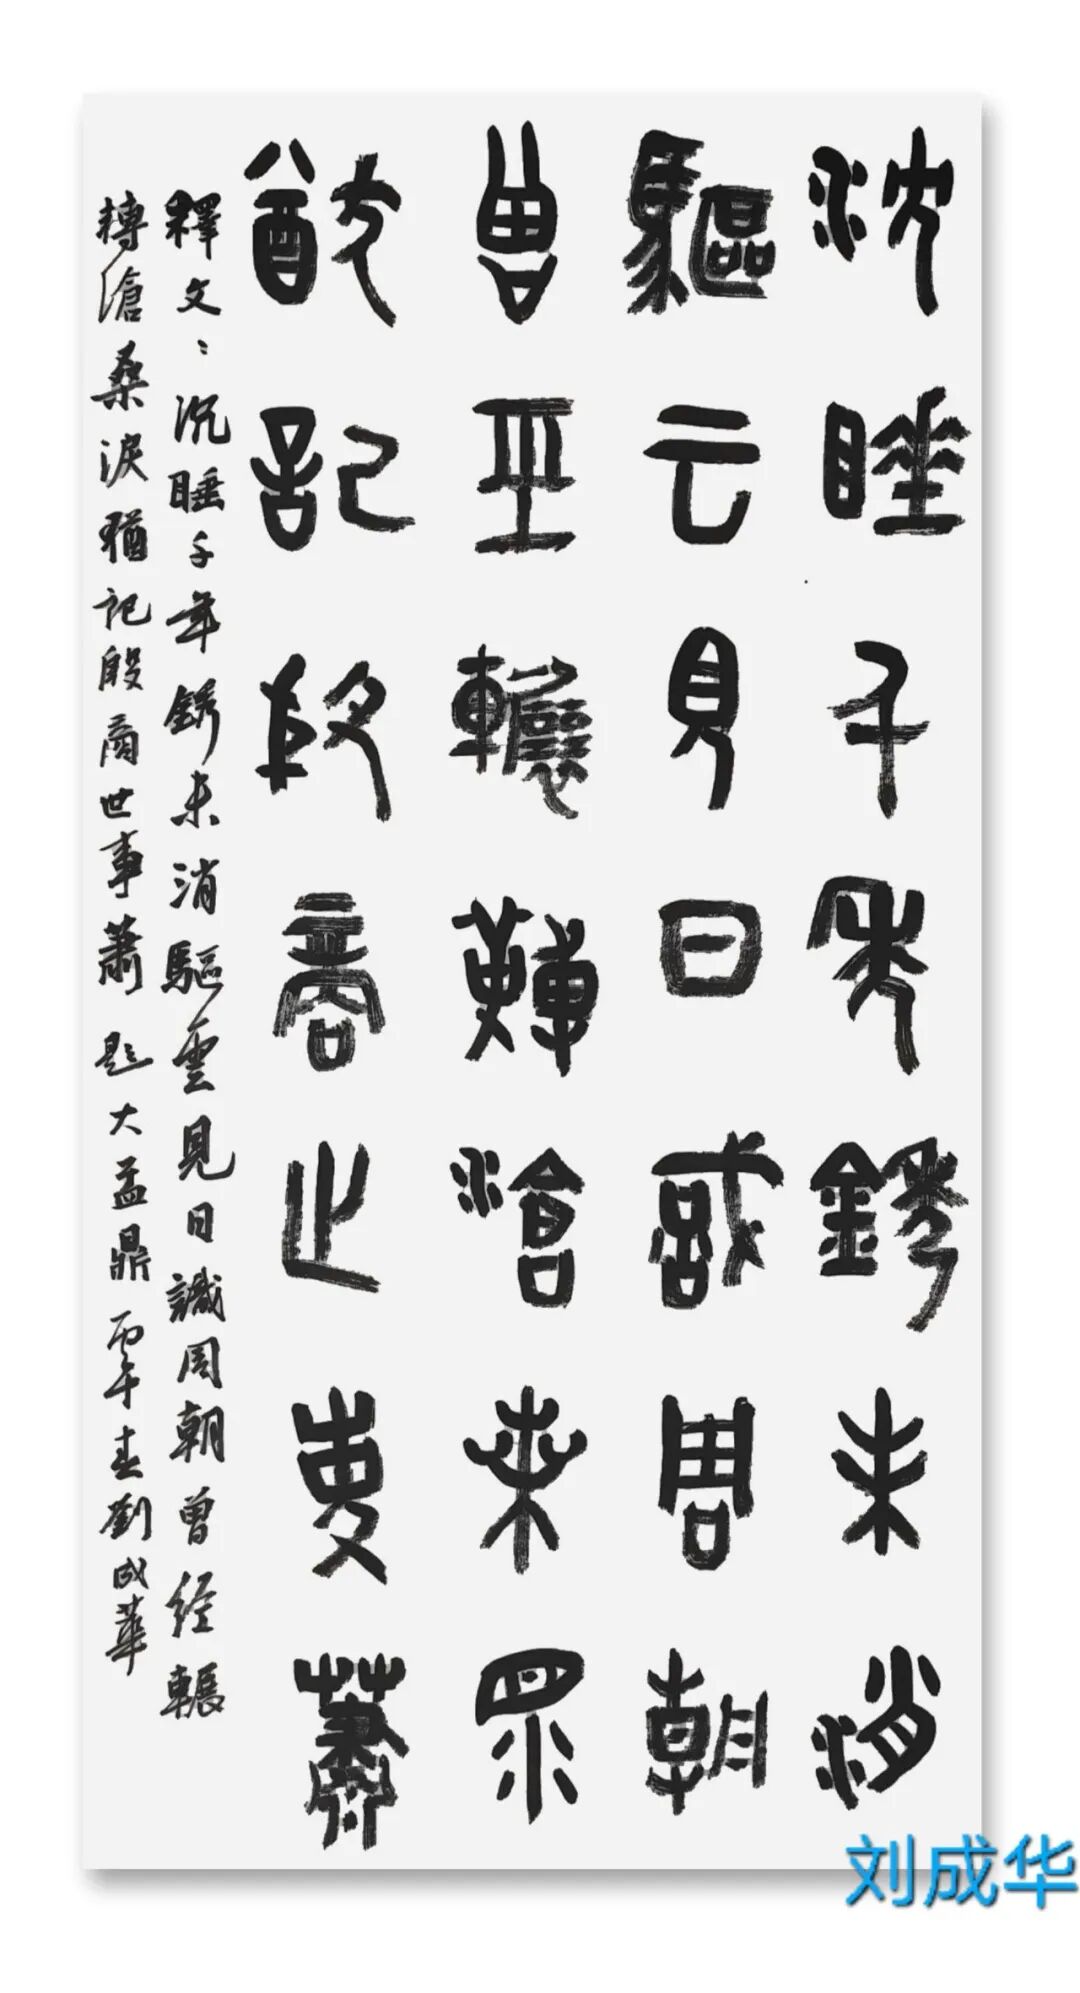 沈睡千年銹未消
驅云見日識周朝
曾巠輾轉滄桑眔
猷記殷商世事蕭
釋文：沉睡千年銹未消驅雲見日識周朝曾經輾
轉滄桑淚猶記殷商世事蕭 題大盂鼎 丙午春劉成華
刘成华